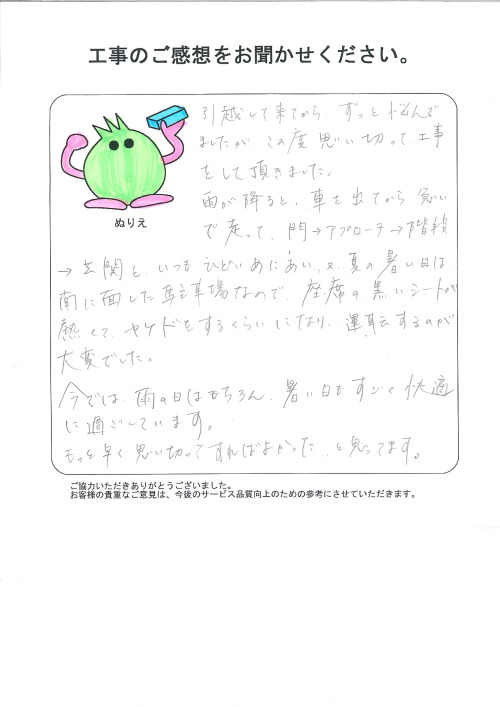 工事のご感想をお聞かせください。
引越して来てから、ずっと悩んで
ましたが、この度思い切って工事
をして頂きました。
雨が降ると、車を出てから急い
で走って、門→アプローチ→階段
ぬりえ
→玄関と、いつもひどいめにあい、又、夏の暑い日は、
南に面した駐車場なので、座席の黒いシートが
熱くて、ヤケドをするくらいになり、運転するのが
大変でした。
今では、雨の日はもちろん、暑い日もすごく快適
に過ごしています。
もっと早く思い切ってすればよかった、と思ってます。
ご協力いただきありがとうございました。
お客様の貴重なご意見は、今後のサービス品質向上のための参考にさせていただきます。